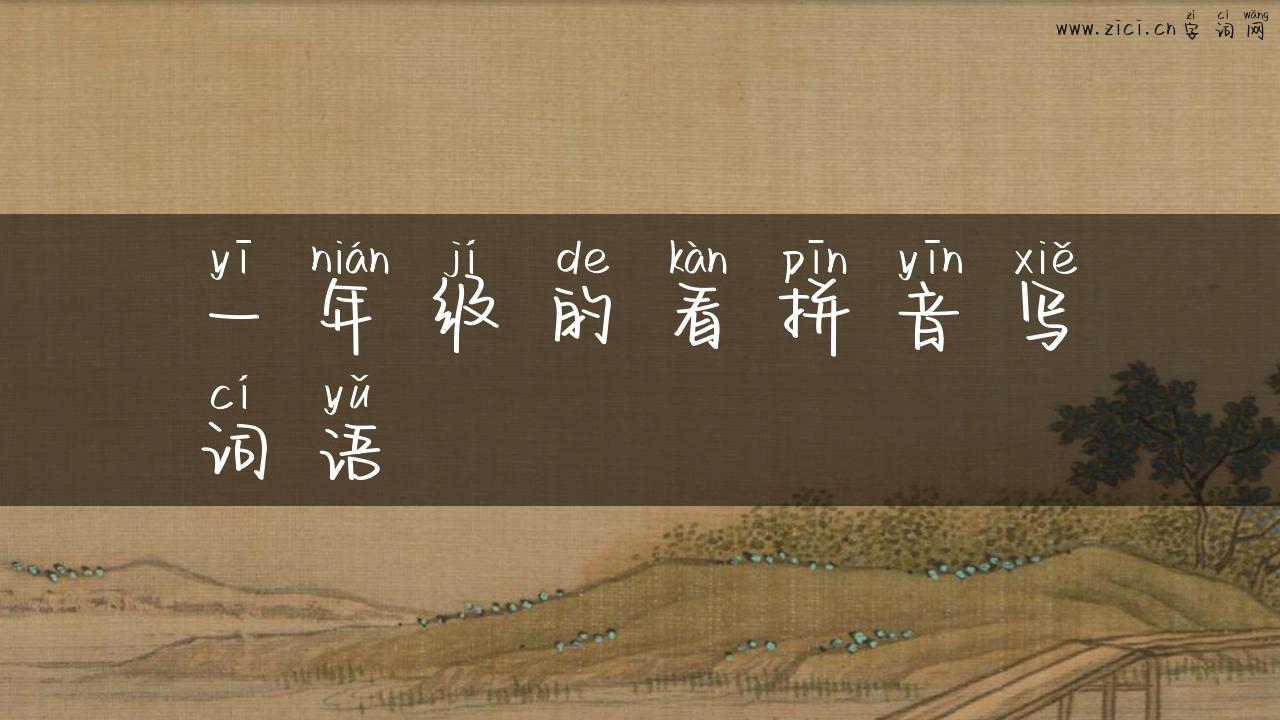 zì cí wǎng
www.zici.cn 字 词 网
yī nián jí de kàn pīn yīn xiě
一 年 级 的 看 拼 音 写
cí yǔ
词 语